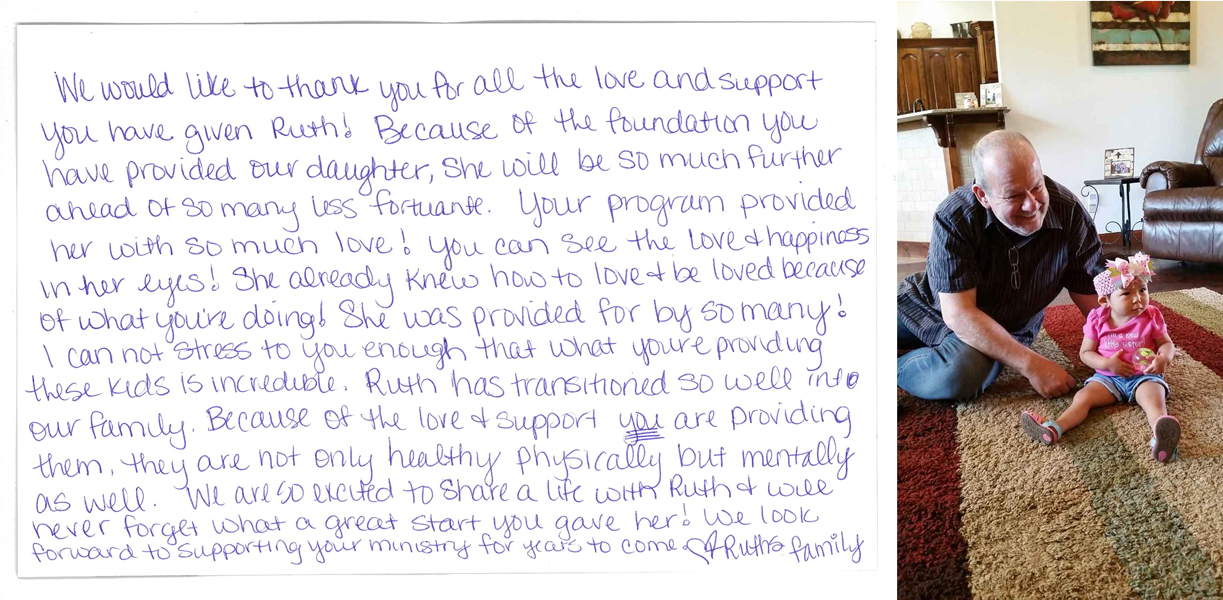 We would like to thank you for all the love and support
you have given Ruth! Because of the foundation you
have provided our daughter, she will be so much further
ahead of so many less fortuante. Your program provided
her with so much love! You can see the love & happiness
in her eyes! She already knew how to love & be loved because
of what you're doing! She was provided for by so many!
I can not stress to you enough that what you're providing
these kids is incredible. Ruth has transitioned so well into
our family. Because of the love & support you are providing
them, they are not only healthy physically but mentally
as well. We are so excited to share a life with Ruth & will
never forget what a great start you gave her! We look
forward to supporting your ministry for years to come ♡ Ruths family
little sister